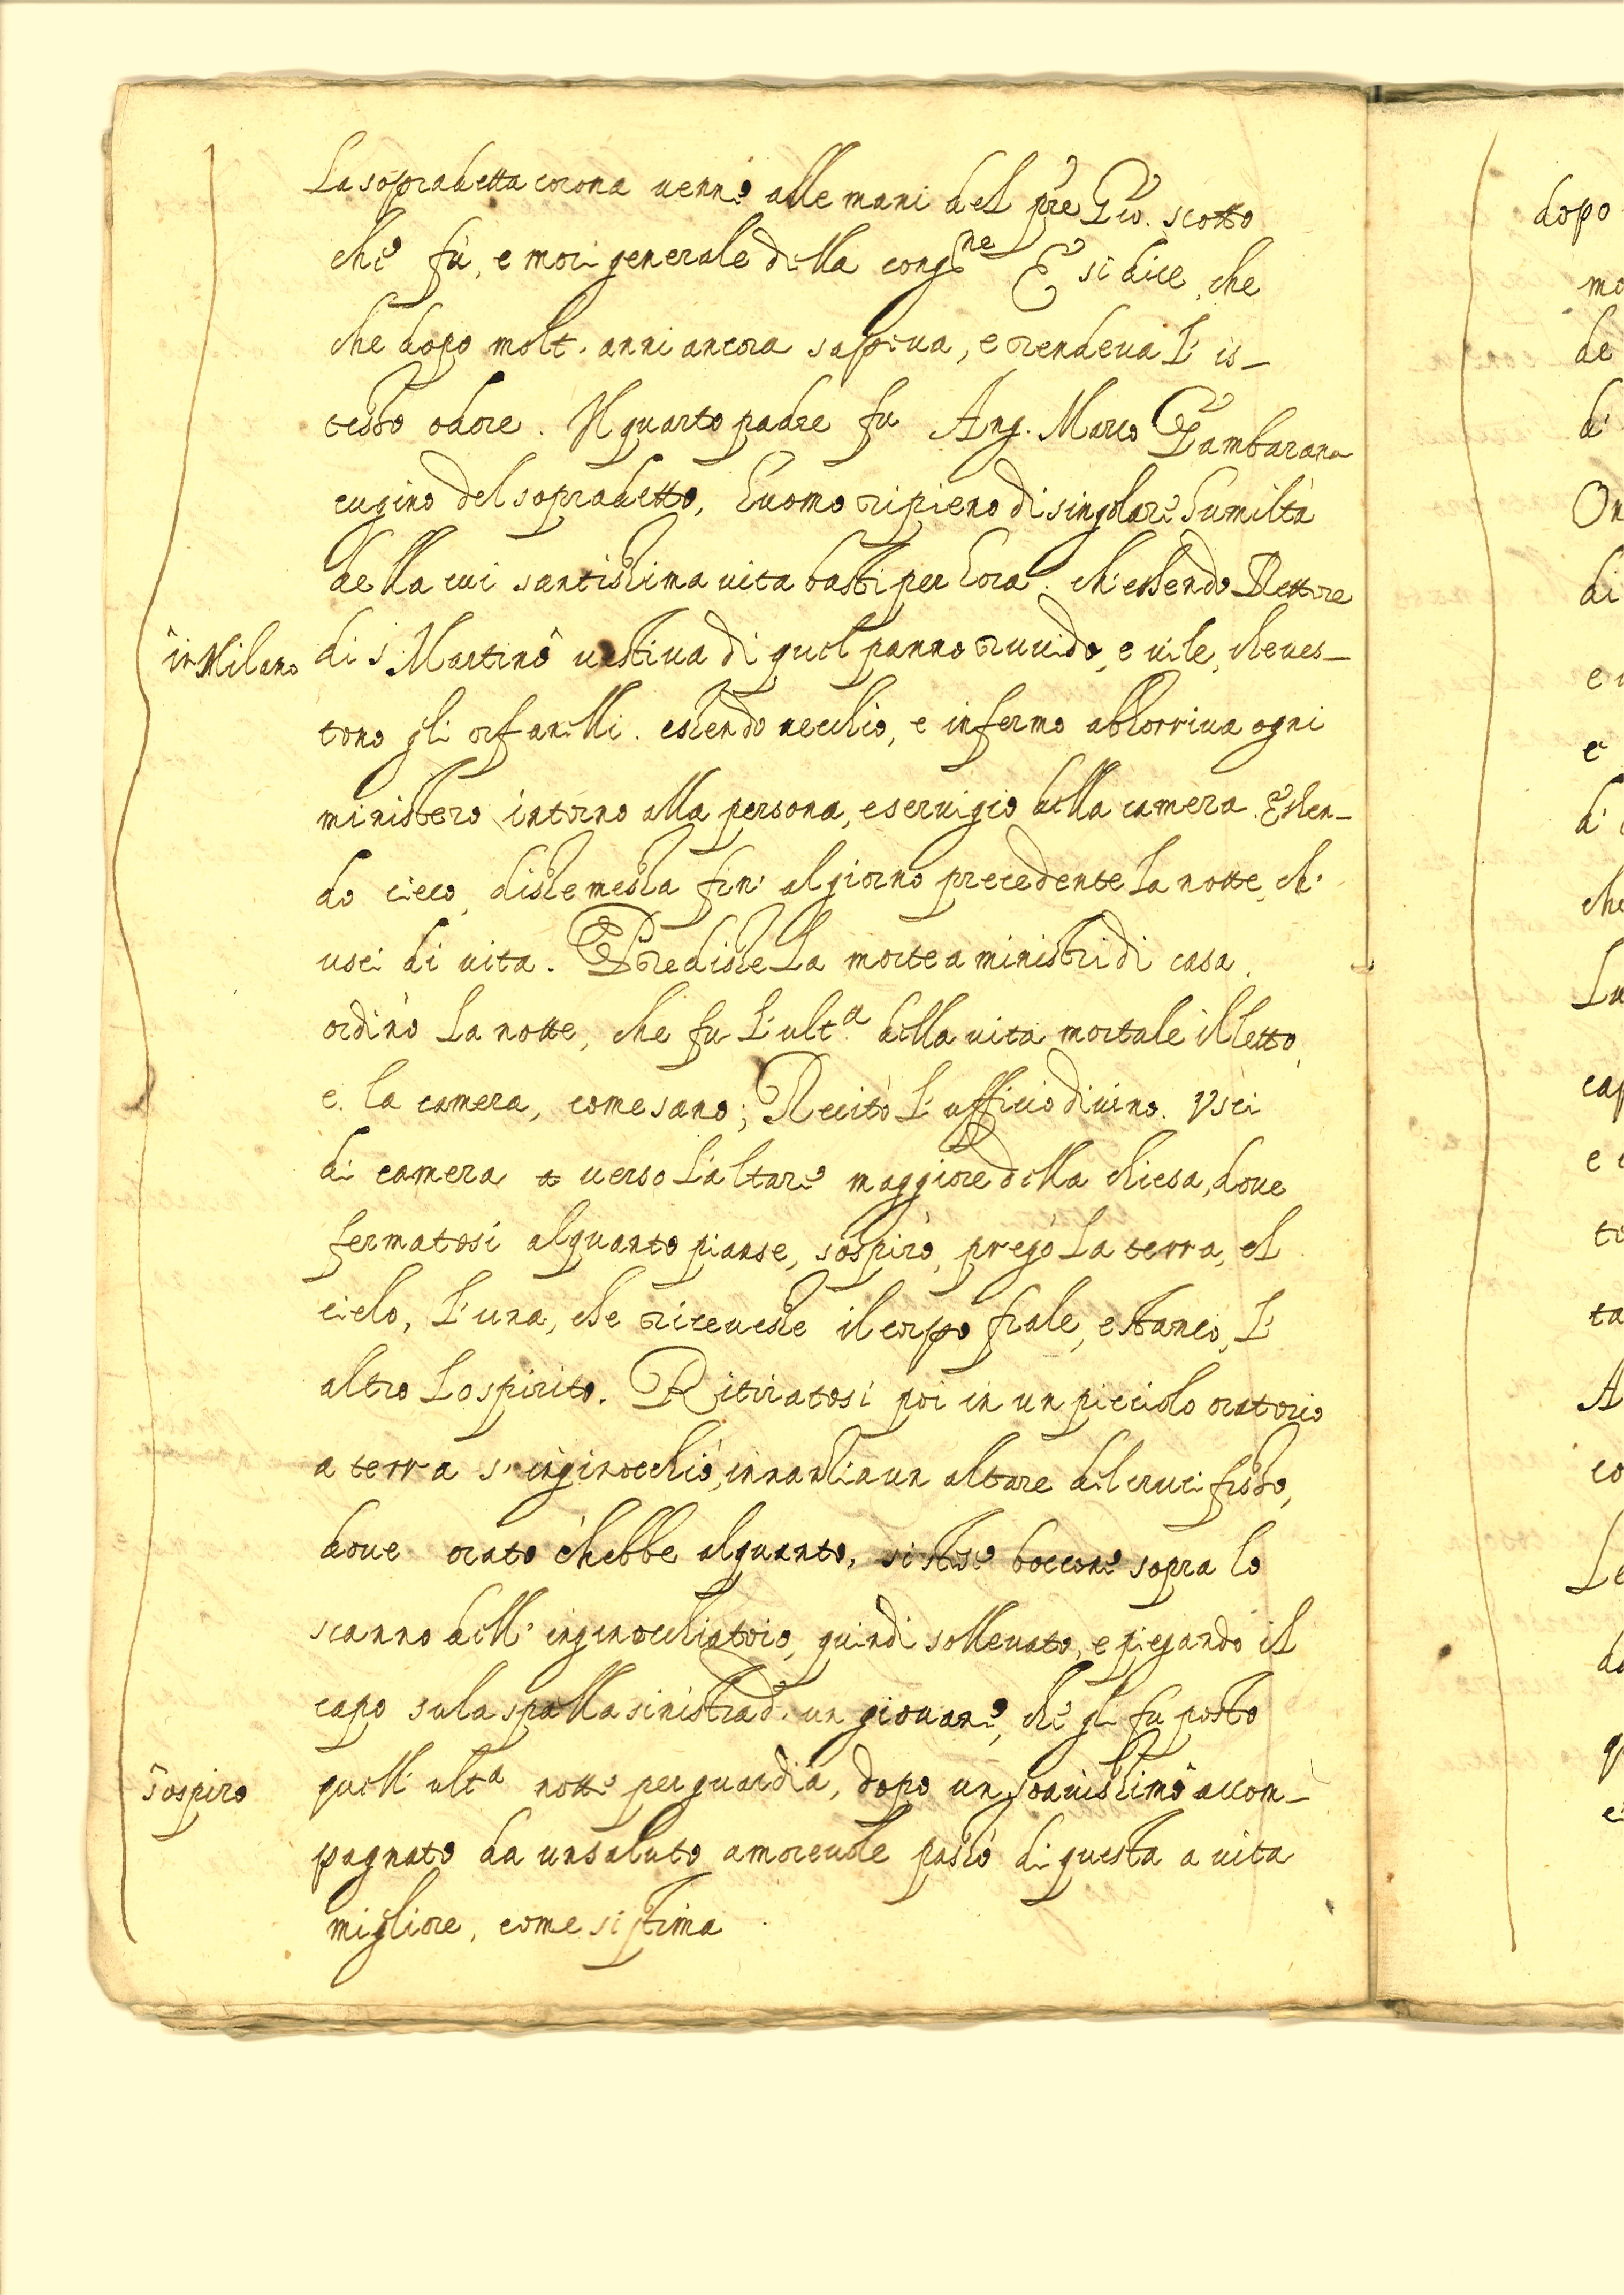 La sopradetta corona venne alle mani del pre Gio. scotto
che fù, e morì generale della congne E si dice, che
che dopo molti anni ancora sapeua, e rendeua l' is-
tesso odore. Il quarto padre fu Ang. Marco Gambarana
cugino del sopradetto, huomo ripieno di singolare humiltà
della cui santissima uita basti per hora. ch'essendo Rettore
in Milano
di s Martino uestiua di quel panno ruuido, e uile, che ues-
tono gli orfanelli. essendo uecchio, e infermo abhorriua ogni
ministero intorno alla persona, e seruigio della camera. Essen-
do cieco, disse messa fin' al giorno precedente la notte, ch'
uscì di uita. Predisse la morte a ministri di casa.
ordinò la notte, che fu l'ulta. della uita mortale il letto,
e la camera, come sano; Recitò l'ufficio diuino. Vscì
di camera uerso l'altare maggiore della chiesa, doue
fermatosi alquanto pianse, sospirò, pregò la terra, el
cielo, l'una, che riceuesse il corpo frale, e stanco, l'
altro lo spirito. Ritiratosi poi in un picciolo oratorio
a terra s'inginocchiò, innanti a un altare del crucifisso,
doue orato ch'ebbe alquanto, si stese boccone sopra lo
scanno dell' inginocchiatoio, quindi solleuato, e piegando il
capo su la spalla sinistra d' un giouane, che gli fu posto
sospiro
quell' ulta notte per guardia, dopo un soauissimo accom-
pagnato da un saluto amoreuole passò di questa a uita
migliore, come si stima
dopo
mo
de
di
On
di
e
e
di
che
Lu
cap
e
te
ta
A
co
Le
da